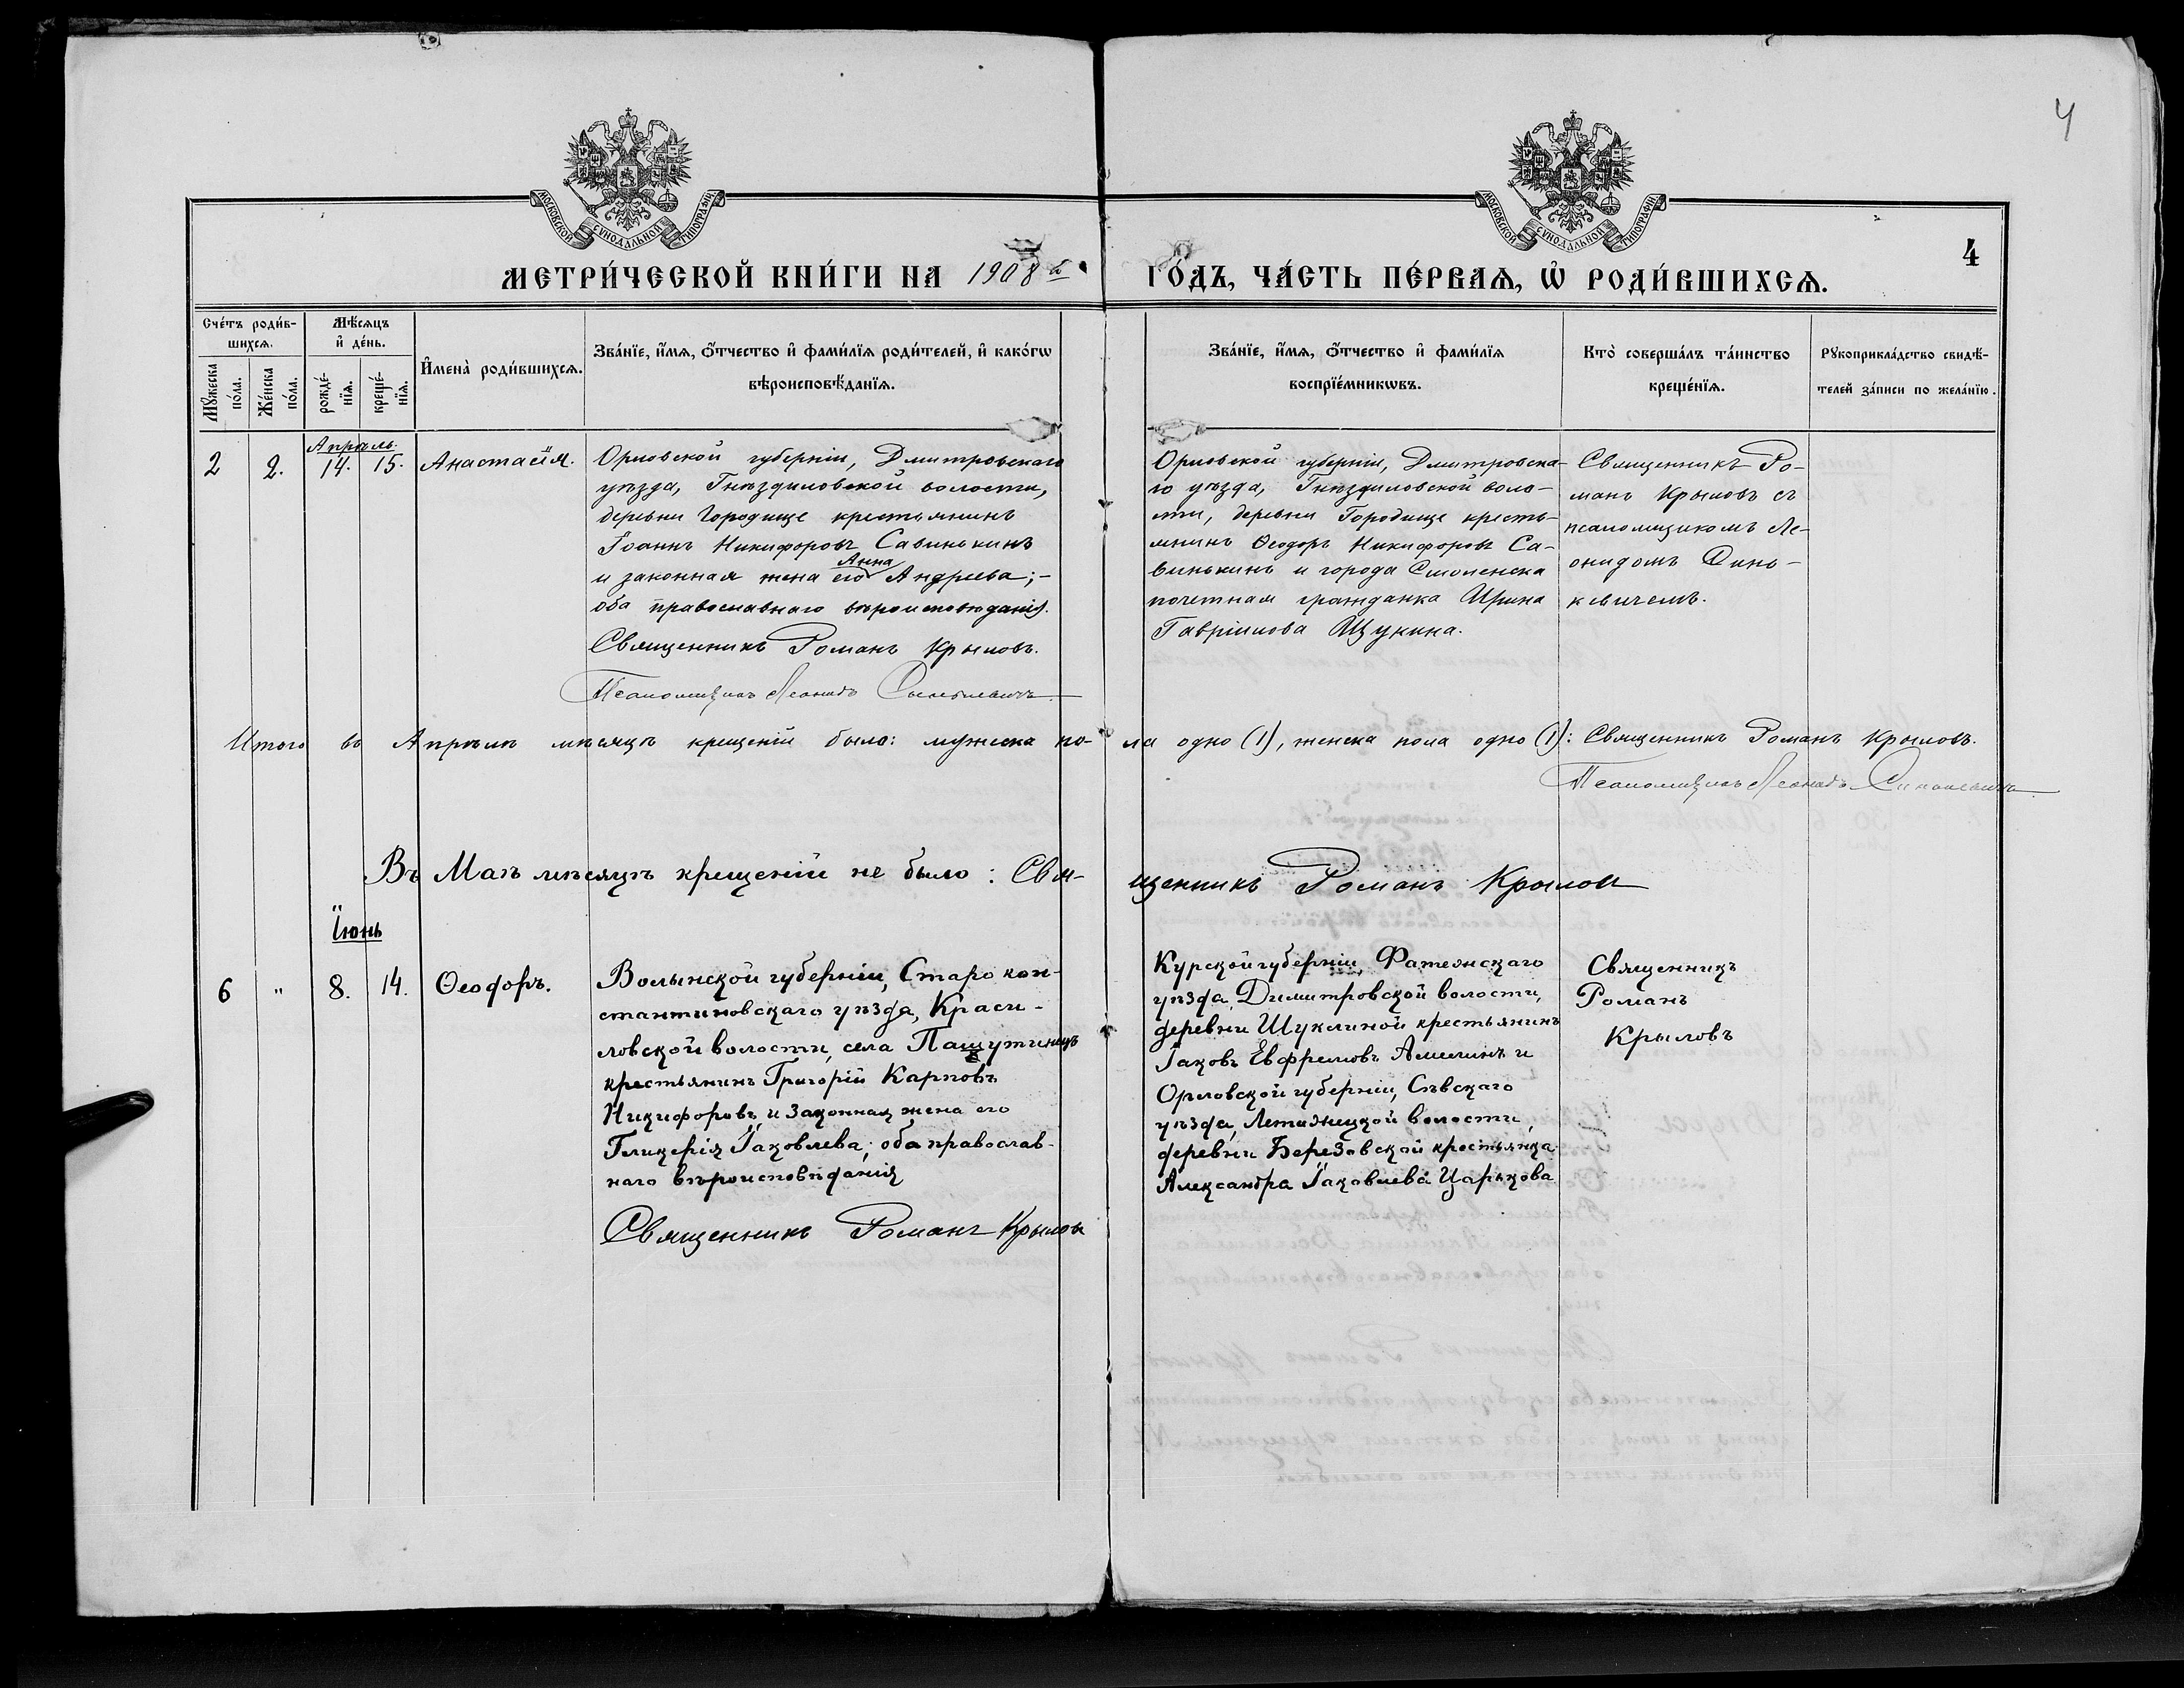 4
МОСКОВСКОЙ СѴНОДАЛЬНОЙ ТИПОГРАФІИ
МОСКОВСКОЙ СѴНОДАЛЬНОЙ ТИПОГРАФІИ
4
МЕТРИ́ЧЕСКОЙ КНИ́ГИ НА 1908 й
ГО́ДЪ, ЧА́СТЬ ПЕ́РВАѦ, Ѡ҆ РОДИ́ВШИХСѦ.
Сче́тъ роди́в-
шихсѧ.
Мꙋ́жеска
по́ла.
Же́нска
по́ла.
Мѣ́сѧцъ
и҆ де́нь.
рожде́-
нїѧ.
креще́-
нїѧ.
И҆мена̀ роди́вшихсѧ.
Зва́нїе, и҆́мѧ, ѻ҆́тчество и҆ фами́лїѧ роди́телей, и҆ како́гѡ
вѣроисповѣ́данїѧ.
Зва́нїе, и҆́мѧ, ѻ҆́тчество и҆ фами́лїѧ
воспрїе́мникѡвъ.
Кто̀ соверша́лъ та́инство
креще́нїѧ.
Рꙋкоприкла́дство свидѣ́-
телей за́писи по жела́нїю.
Апрѣль.
2 2. 14. 15. Анастасія.
Орловской губерніи, Дмитровскаго
уѣзда, Гнѣздиловской волости,
деревни Городище крестьянинъ
Іоаннъ Никифоровъ Савинькинъ
Анна
и законная жена его Андреева;-
оба православнаго вѣроисповѣданія.
Священникъ Романъ Крыловъ.
Псаломщикъ Леонидъ Синькевичъ
Орловской губерніи, Дмитровска-
го уѣзда, Гнѣздиловской воло-
сти, деревни Городище кресть-
янинъ Ѳеодоръ Никифоровъ Са-
винькинъ и города Смоленска
почетная гражданка Ирина
Гавріилова Щукина.
Священникъ Ро-
манъ Крыловъ съ
псаломщикомъ Ле-
онидомъ Синь-
кевичемъ.
Итого въ Апрѣлѣ мѣсяцѣ крещеній было: мужеска по-
ла одно (1), женска пола одно (1): Священникъ Романъ Крыловъ.
Псаломщикъ Леонидъ Синькевичъ
Въ Маѣ мѣсяцѣ крещеній не было: Свя-
щенникъ Романъ Крыловъ
Іюнь
6 " 8. 14. Ѳеодоръ.
Волынской губерніи, Старокон-
стантиновскаго уѣзда, Краси-
ловской волости, села Пашутинецъ
крестьянинъ Григорій Карповъ
Никифоровъ и законная жена его
Гликерія Іаковлева; оба православ-
наго вѣроисповѣданія
Священникъ Романъ Крыловъ
Курской губерніи, Фатежскаго
уѣзда, Димитровской волости,
деревни Шуклиной крестьянинъ
Іаковъ Евфремовъ Амелинъ и
Орловской губерніи, Сѣвскаго
уѣзда, Лемяжецкой волости,
деревни Березовской крестьянка
Александра Іаковлева Царькова
Священникъ
Романъ
Крыловъ